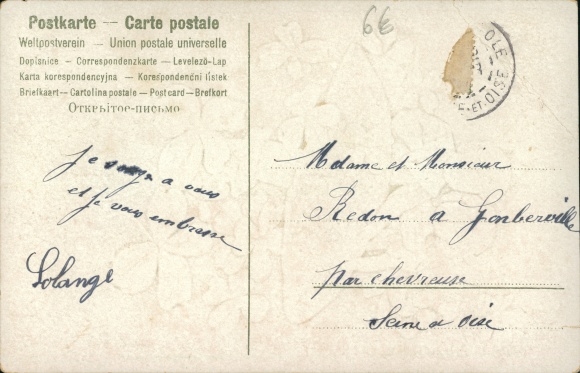 Postkarte — Carte postale
Weltpostverein — Union postale universelle
Dopisnice - Correspondenzkarte — Levelező-Lap
Karta korespondencyjna — Korespondenční lístek
Briefkaart — Cartolina postale — Postcard — Brefkort
Открытое-письмо
6€
OLE
ET-OISE
Je songe a vous
et je vous embrasse
Solange
Madame et Monsieur
Redon a Gonberville
par chevreuse
Seine a oise